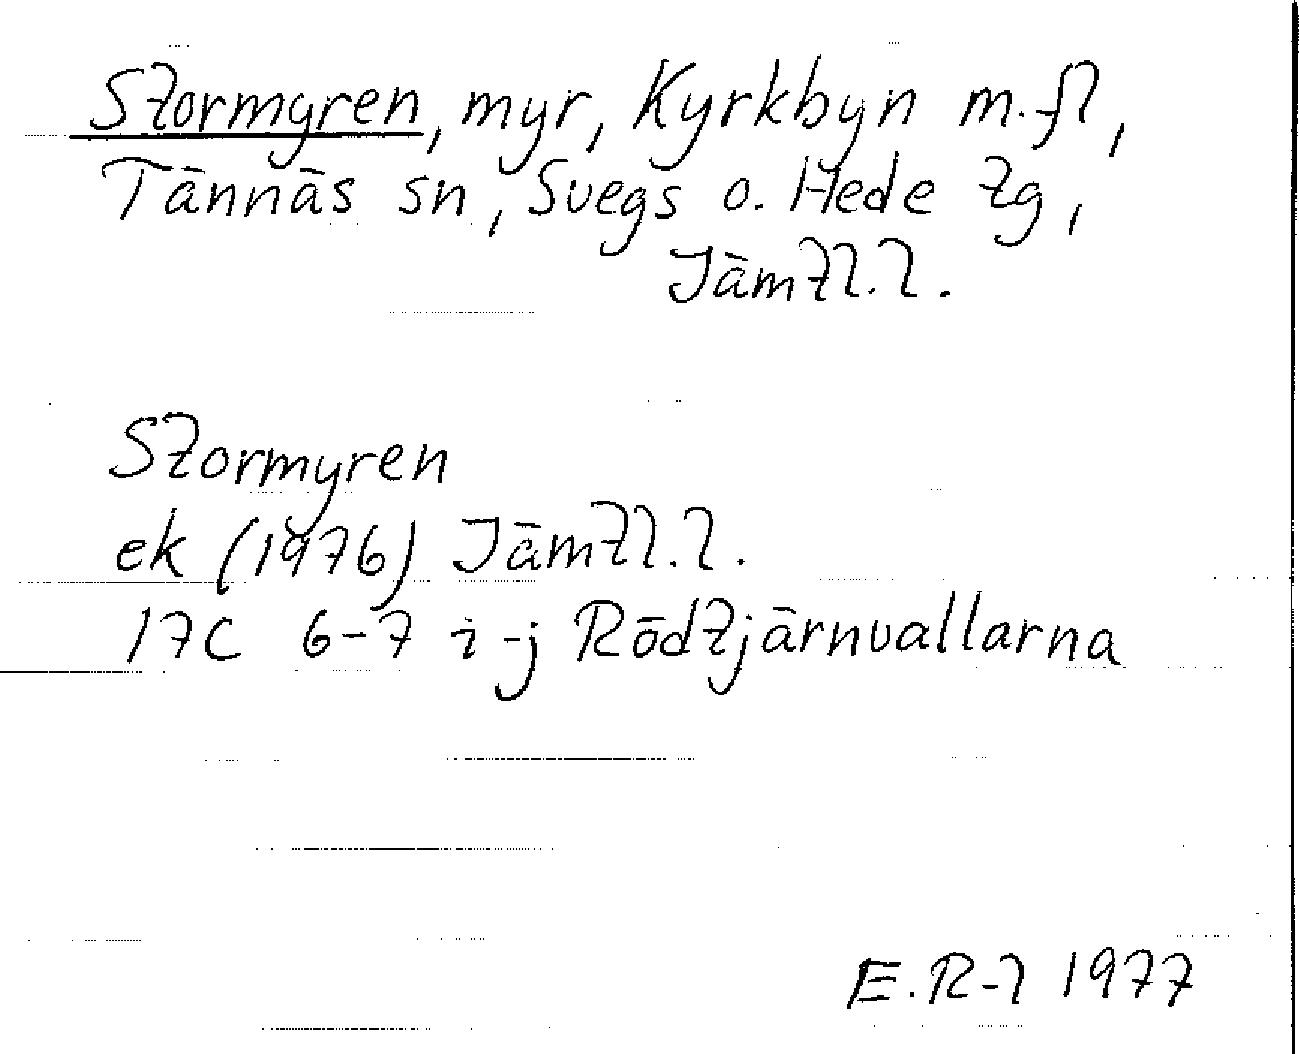 Stormyren, myr, Kyrkbyn m.fl,
Tännäs sn, Svegs o. Hede tg,
Jämtl.l.
Stormyren
ek (1976) Jämtl.l.
17C 6-7 i-j Rödtjärnvallarna
E.R-l 1977